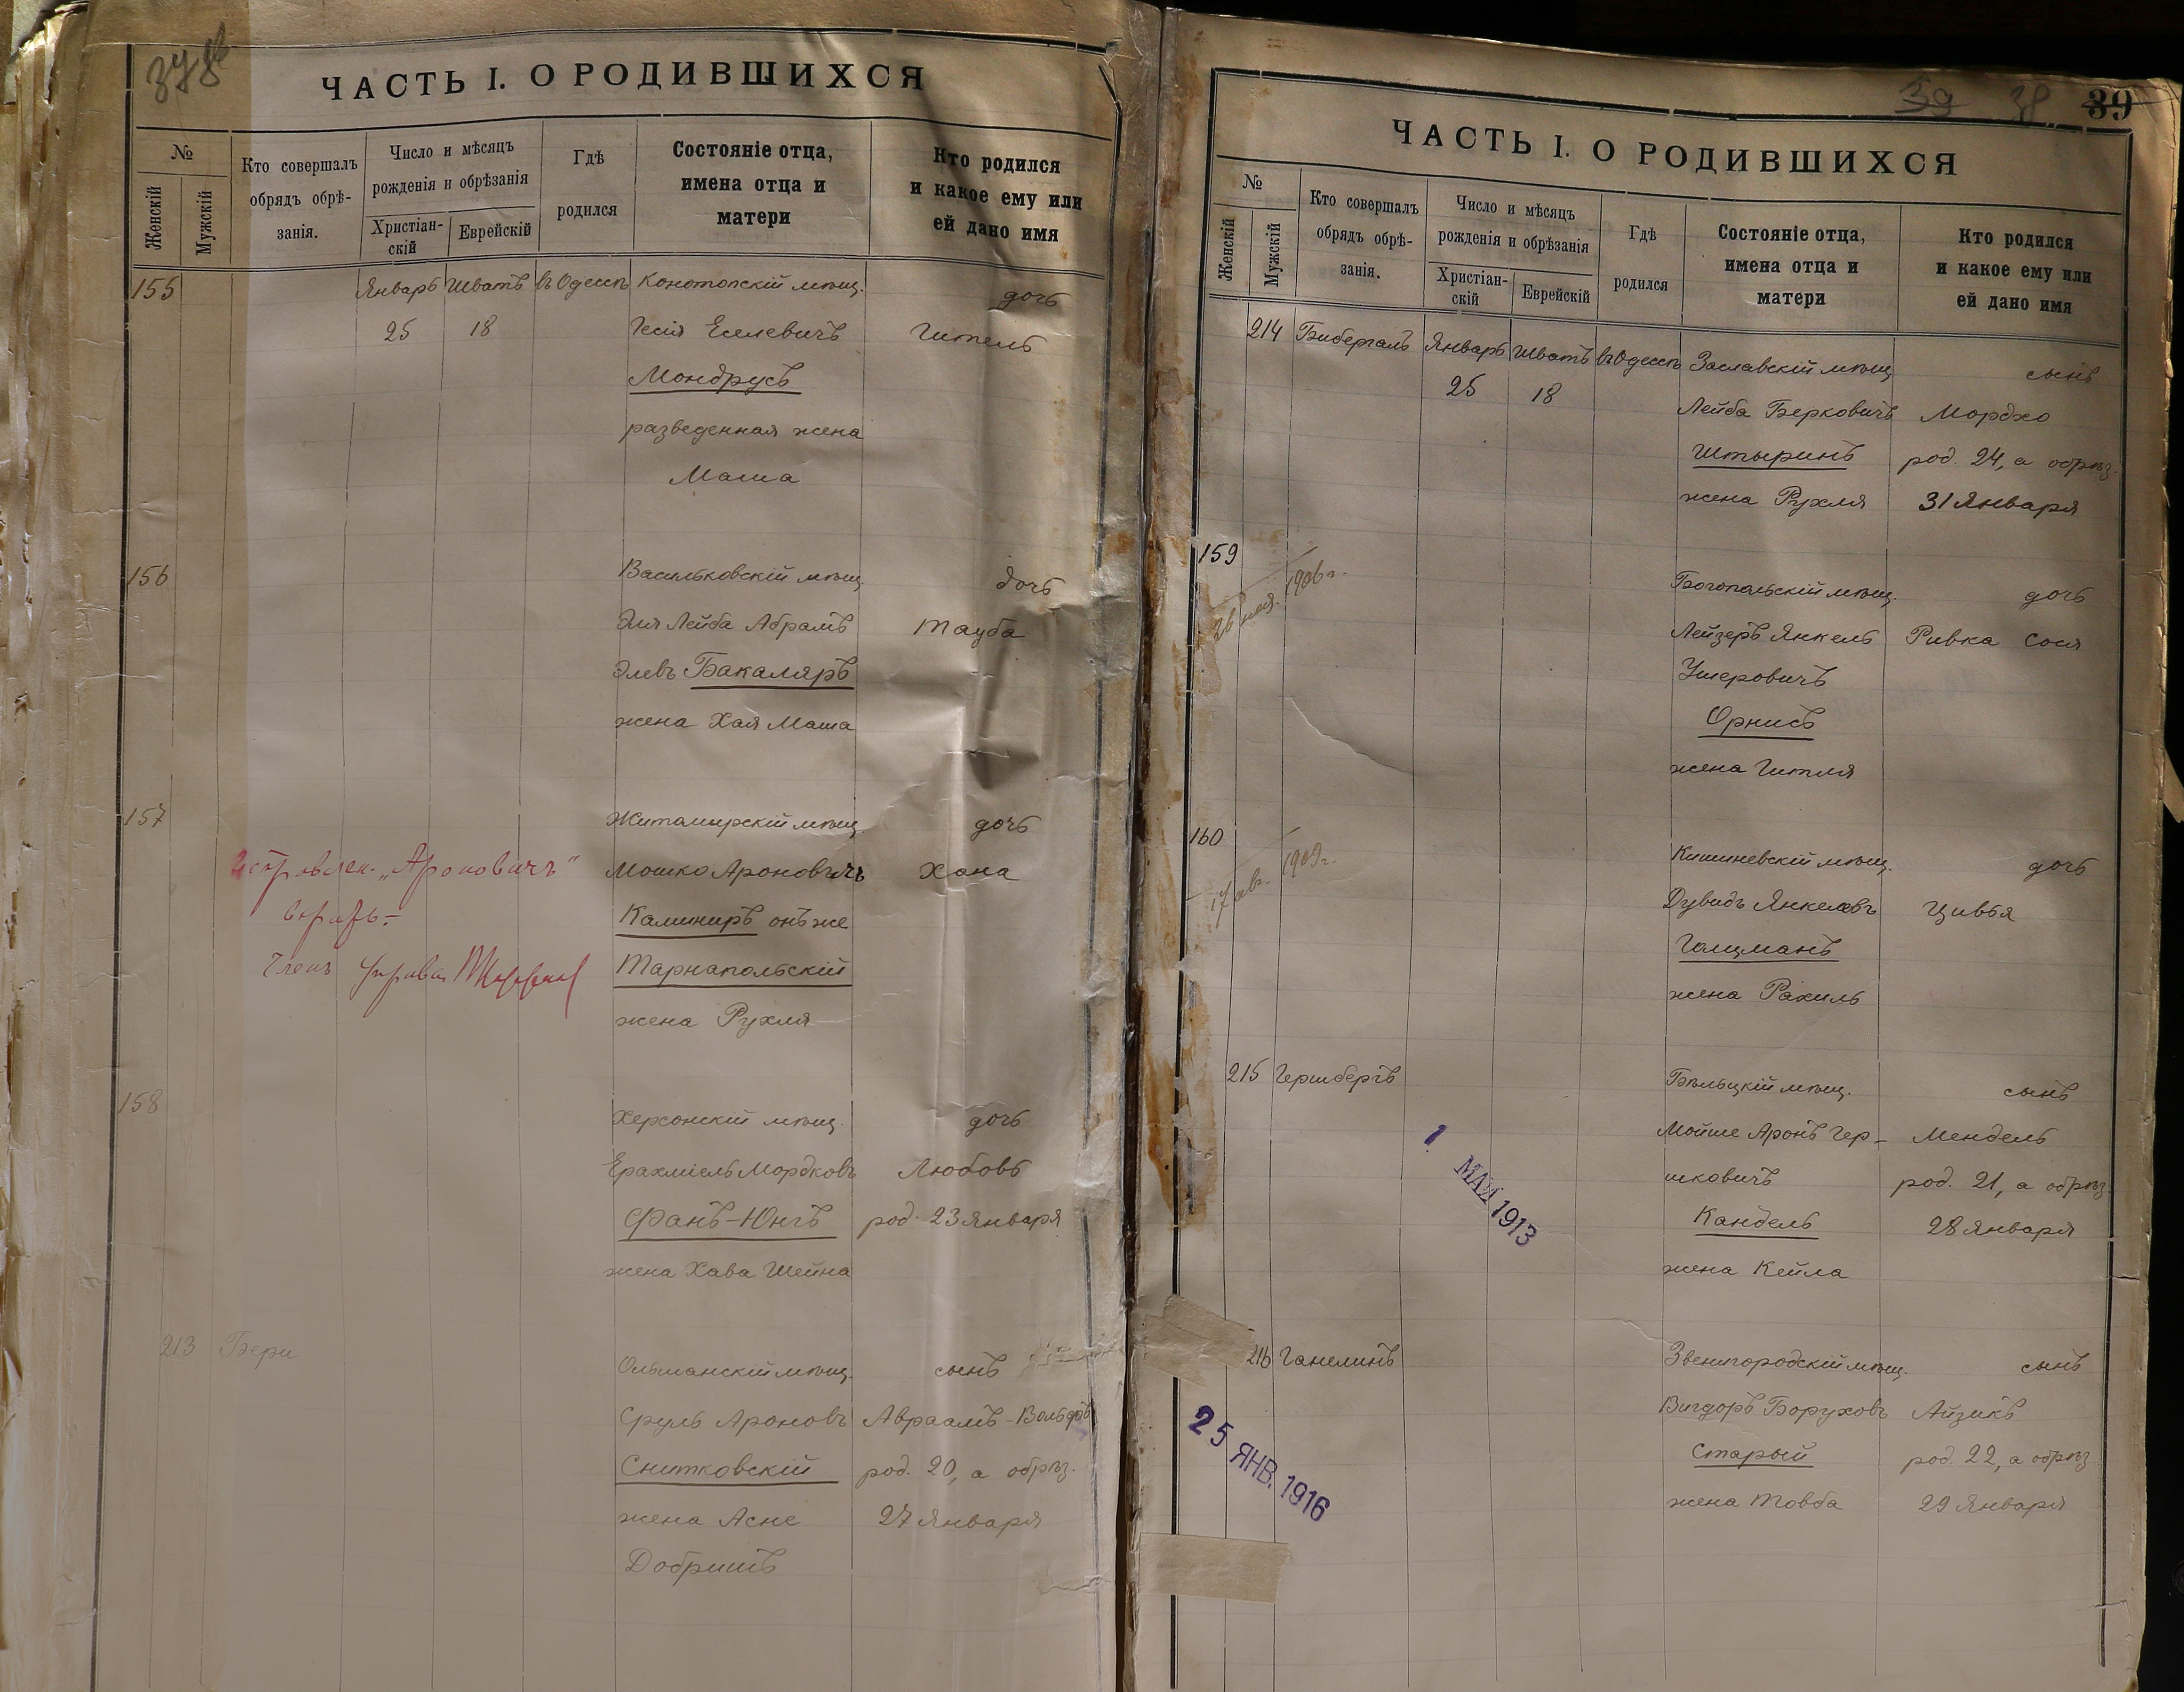 ЧАСТЬ I. О РОДИВШИХСЯ
№
Женскій
Мужскій
Кто совершалъ
обрядъ обрѣ-
занія.
Число и мѣсяцъ
рожденія и обрѣзанія
Христіан-
скій
Еврейскій
Гдѣ
родился
Состояніе отца,
имена отца и
матери
Кто родился
и какое ему или
ей дано имя
155 Январь Шватъ въ Одессѣ Конотопскій мѣщ. дочь
25 18 Іесія Еселевичъ Гитель
Мондрусъ
разведенная жена
Маша
156 Васильковскій мѣщ. дочь
Эля Лейба Абрамъ Тауба
Элевъ Бакаляръ
жена Хая Маша
157 Житомирскій мѣщ. дочь
"Ароновичъ" Мошко Ароновичъ Хана
Калиниръ онъ же
Тарнапольскій
жена Рухля
158 Херсонскій мѣщ. дочь
Ерахміель Мордковъ Любовь
Фанъ-Юнгъ род. 23 Января
жена Хава Шейна
213 Бери Ольманскій мѣщ. сынъ
Сруль Ароновъ Авраамъ-Вольфъ
Снитковскій род. 20, а обрѣз.
жена Асне 27 Января
Добришъ
39
39
ЧАСТЬ I. О РОДИВШИХСЯ
№
Женскій
Мужскій
Кто совершалъ
обрядъ обрѣ-
занія.
Число и мѣсяцъ
рожденія и обрѣзанія
Христіан-
скій
Еврейскій
Гдѣ
родился
Состояніе отца,
имена отца и
матери
Кто родился
и какое ему или
ей дано имя
214 Бибергалъ Январь Шватъ въ Одессѣ Заславскій мѣщ. сынъ
25 18 Лейба Берковичъ Мордхо
Штыринъ род. 24, а обрѣз.
жена Рухля 31 Января
159 1906 г. Богопольскій мѣщ. дочь
Лейзеръ Янкель Ривка Сося
Ушеровичъ
Орнисъ
жена Гитля
160 1909 г. Кишиневскій мѣщ. дочь
17 авг. Дувидъ Янкелевъ Цивья
Голцманъ
жена Рахиль
215 Гершбергъ Бѣльцкій мѣщ. сынъ
Мойше Аронъ Гер- Мендель
шковичъ род. 21, а обрѣз.
Кандель 28 Января
жена Кейла
1 МАЯ 1913
216 Ганелинъ Звенигородскій мѣщ. сынъ
Вигдоръ Боруховъ Айзикъ
Старый род. 22, а обрѣз
жена Товба 29 Января
25 ЯНВ. 1916